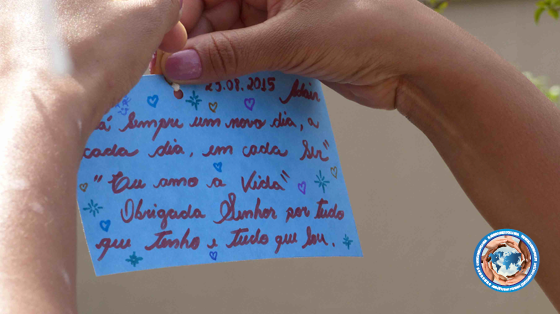 25.08.2015 Adair
á sempre um novo dia, a
cada dia, em cada Ser"
"Eu amo a Vida"
Obrigada Senhor por tudo
que tenho e tudo que sou.